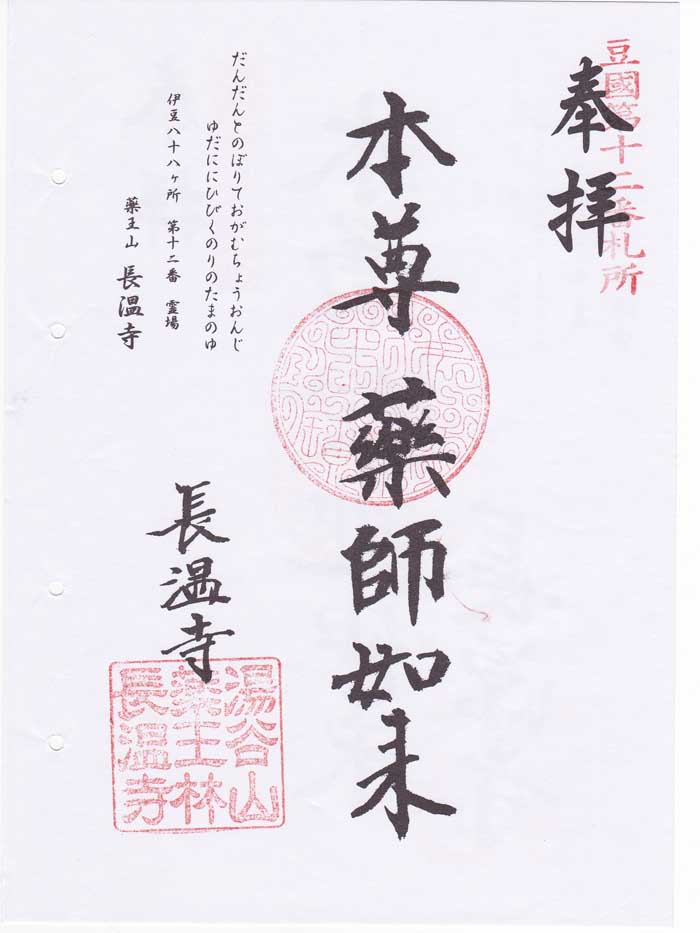 豆國第十二番札所
奉拝
本尊 藥師如来
だんだんとのぼりておがむちょうおんじ
ゆだににひびくのりのたまのゆ
伊豆八十八ヶ所 第十二番 霊場
薬王山 長温寺
長温寺
湯谷山
薬王林
長温寺